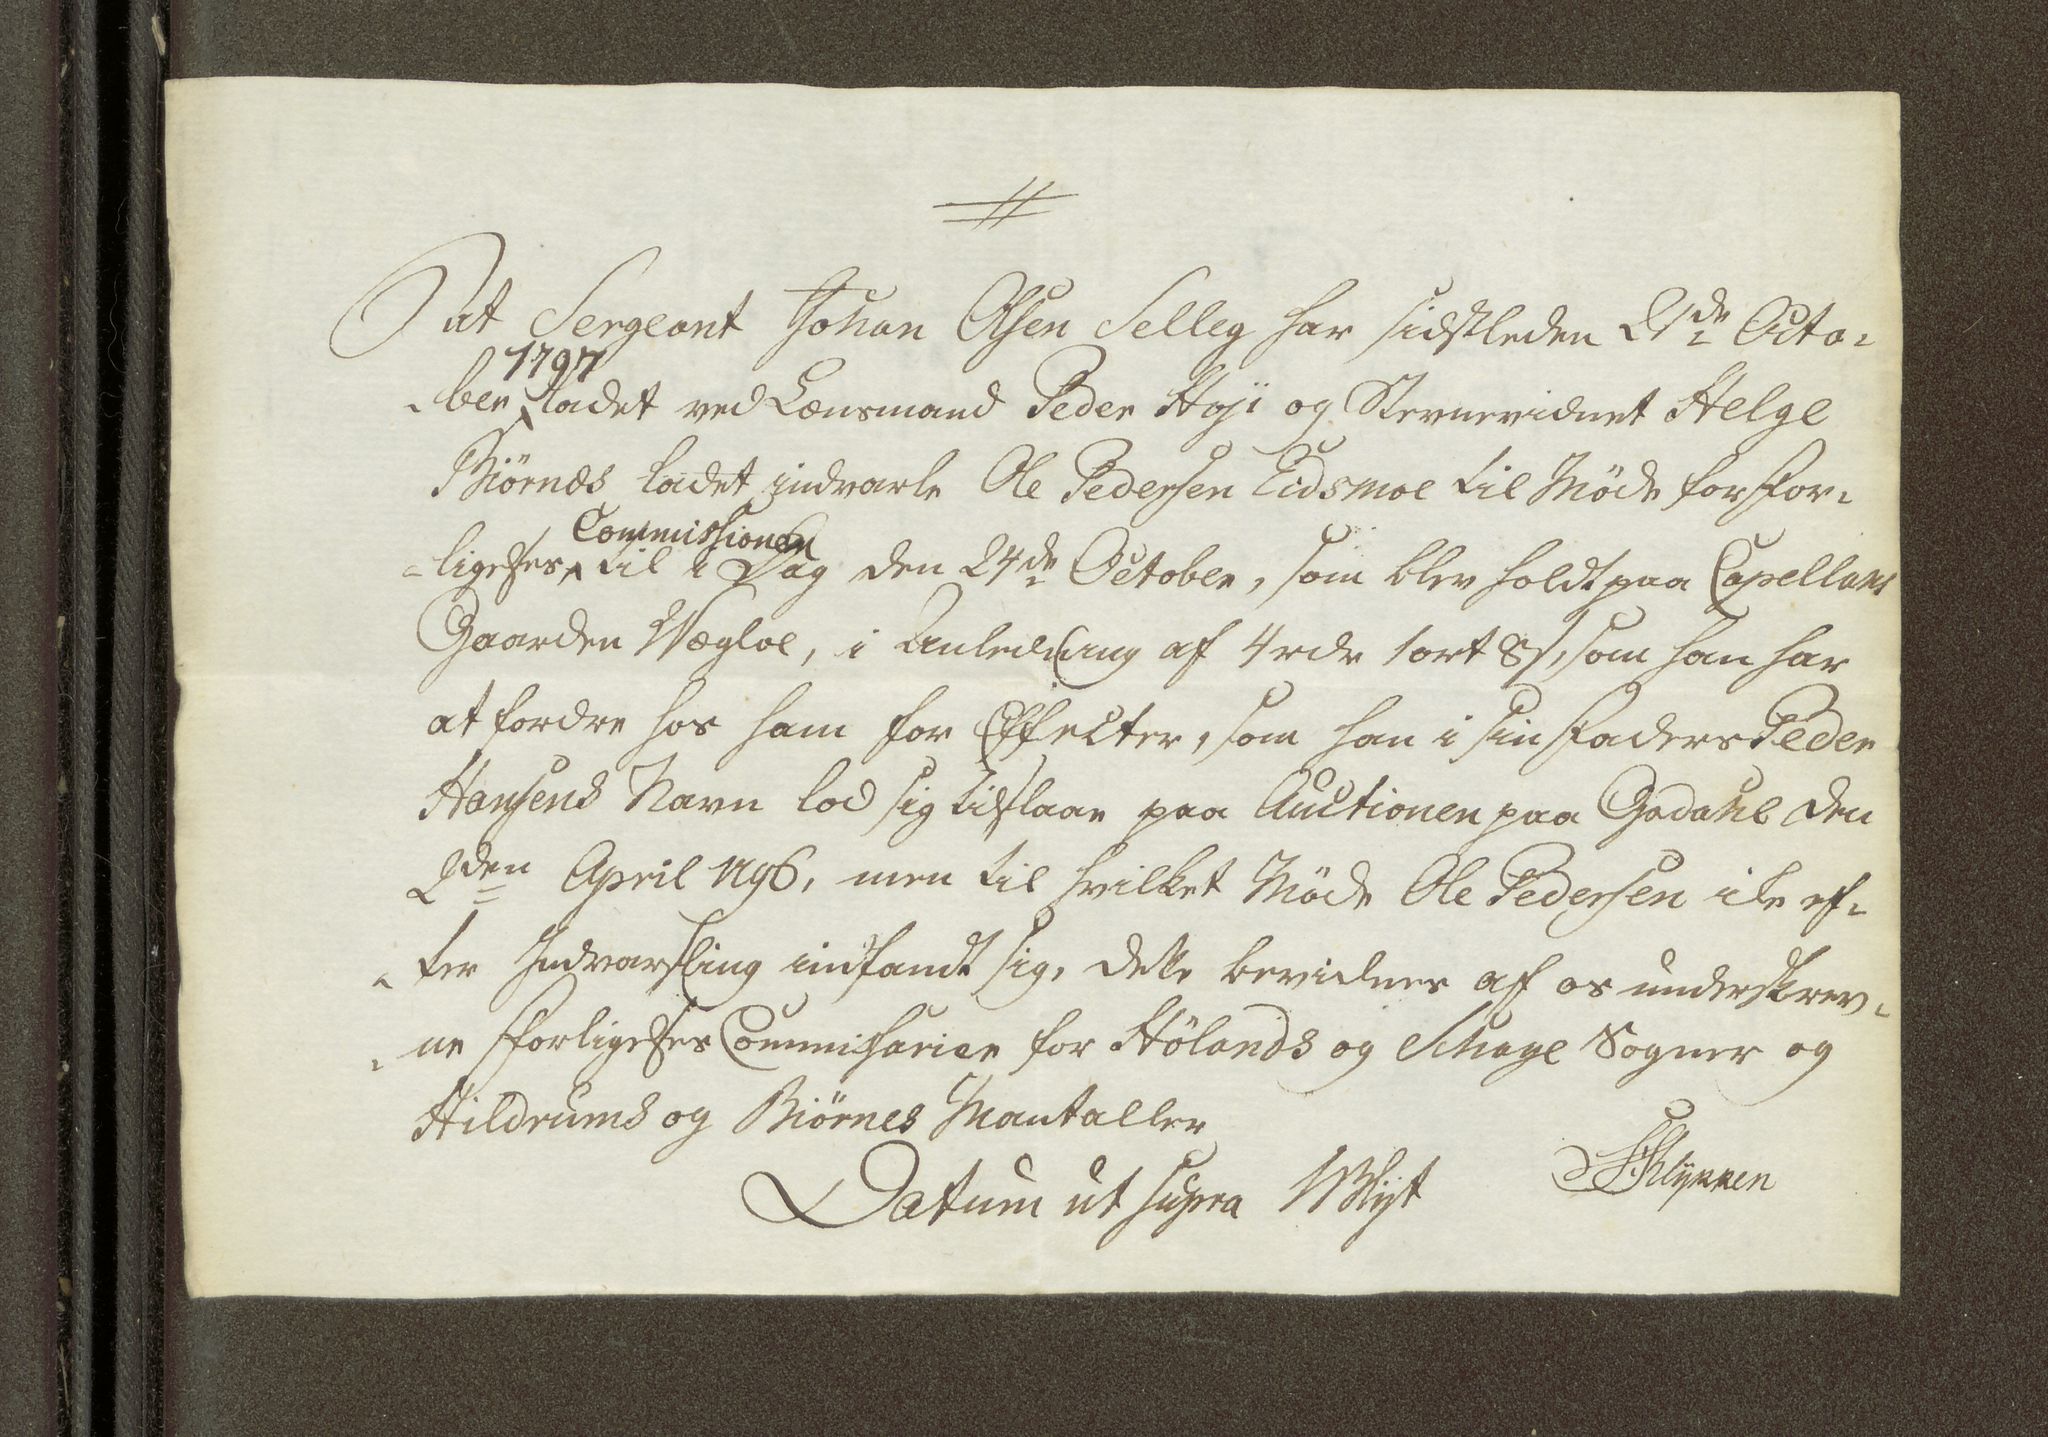 At Sergeant Johan Olsen Selleg har sidstleden 2de Octo-
1797
-ber ladet ved Lensmand Peder Høji og Stevnevidnet Helge
Biörnes ladet indvarle Ole Pedersen Eidsmoe til Møde for For-
Commissionen
-ligelses til i Dag den 24de October, som blev holdt paa Capellans
Gaarden Wægloe, i Anledning af 4 rdr 1 ort 8 s, som han har
at fordre hos ham for Effecter, som han i sin Faders Peder
Hansens Navn lod sig tilslaae paa Auctionen paa Godahl den
2den April 1796, men til hvilket Møde Ole Pedersen ike ef-
-ter Indvarsling indfandt sig, dette bevidnes af os underskrev-
-ne Forligelses Commissarier for Hölands og Schage Sogner og
Hildrums og Biörnes Mantaller
Datum ut supra